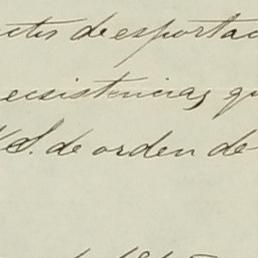 de esportac
ecsistencias, qu
S. de orden de